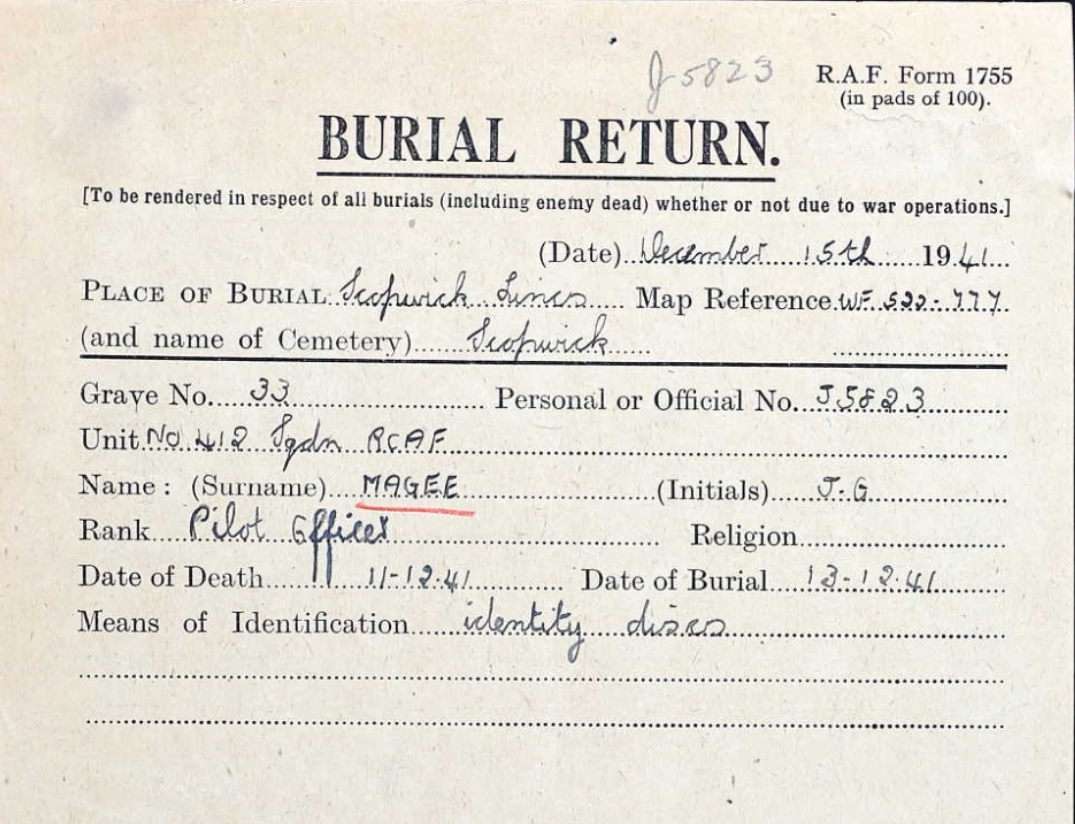 J-5823
R.A.F. Form 1755
(in pads of 100).
BURIAL RETURN.
[To be rendered in respect of all burials (including enemy dead) whether or not due to war operations.]
(Date) December 15th 1941
PLACE OF BURIAL Scopwick Lincs Map Reference WF 522-777
(and name of Cemetery) Scopwick
Grave No. 33 Personal or Official No. J5823
Unit No 412 Sqdn RCAF
Name: (Surname) MAGEE (Initials) J-G
Rank Pilot Officer Religion
Date of Death 11-12-41 Date of Burial 13-12-41
Means of Identification identity discs